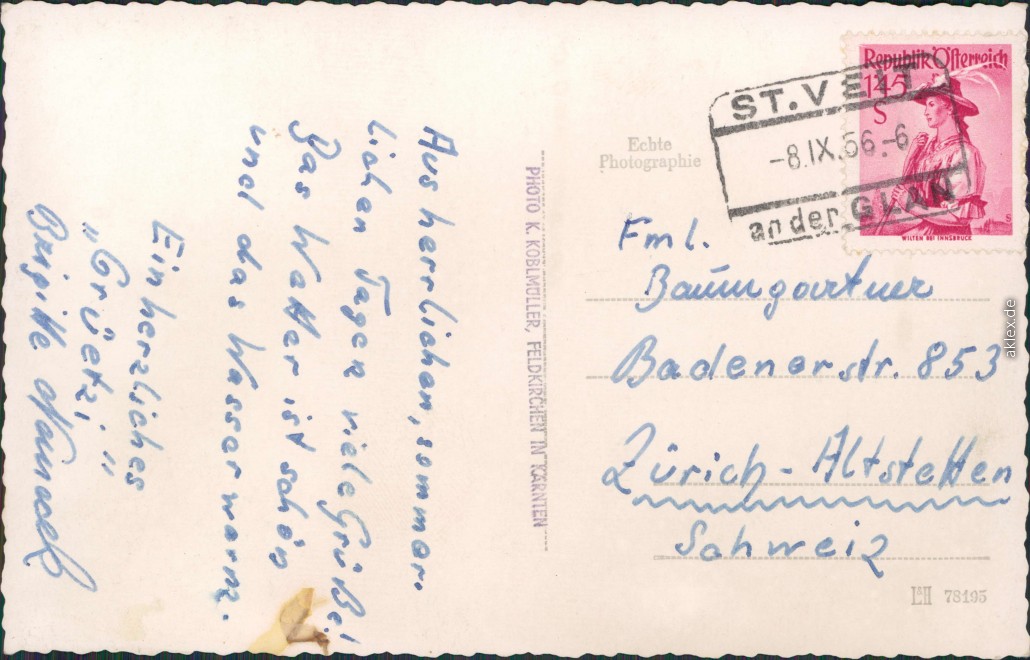 Aus herrlichen, sommer-
lichen Tagen viele Grüße!
Das Wetter ist schön
und das Wasser warm.
Ein herzliches
„Grüetzi"
Brigitte
PHOTO K. KOBLMÜLLER, FELDKIRCHEN IN KÄRNTEN
Echte
Photographie
ST. VEIT
-8.IX.56.-6
an der GLAN
Republik Österreich
1·45
S
WILTEN BEI INNSBRUCK
Fml.
Baumgartner
Badenerstr. 853
Zürich-Altstetten
Schweiz
78195
aklex.de